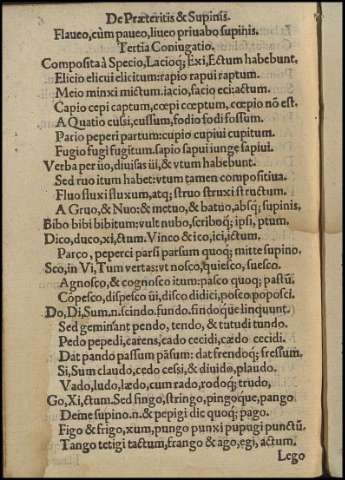 De Præteritis & Supinis.
Flaueo, cùm paueo, liueo priuabo supinis.
Tertia Coniugatio.
Composita à Specio, Lacioq; Exi, Ectum habebunt.
Elicio elicui elicitum: rapio rapui raptum.
Meio minxi mictum. iacio, facio eci: actum.
Capio cepi captum, cœpi cœptum, cœpio nō est.
A Quatio cussi, cussum, fodio fodi fossum.
Pario peperi partum: cupio cupiui cupitum.
Fugio fugi fugitum. sapio sapui iunge sapiui.
Verba per üo, diuisas üi, & vtum habebunt.
Sed ruo itum habet: vtum tamen compositiua.
Fluo fluxi fluxum, atq; struo struxi structum.
A Gruo, & Nuo: & metuo, & batüo, absq; supinis.
Bibo bibi bibitum: vult nubo, scriboq; ipsi, ptum.
Dico, duco, xi, ctum. Vinco & ico, ici, ictum.
Parco, peperci parsi parsum quoq; mitte supino.
Sco, in Vi, Tum vertas: vt nosco, quiesco, suesco.
Agnosco, & cognosco itum: pasco quoq; pastū.
Cōpesco, dispesco üi, disco didici, posco poposci.
Do, Di, Sum. n. scindo. fundo. findoque linquunt.
Sed geminant pendo, tendo, & tutudi tundo.
Pedo pepedi, carens, cado cecidi, cædo cecidi.
Dat pando passum pāsum: dat frendoq; fressum.
Si, Sum claudo, cedo cessi, & diuido, plaudo.
Vado, ludo, lædo, cum rado, rodoq; trudo,
Go, Xi, ctum. Sed fingo, stringo, pingoque, pango
Deme supino. n. & pepigi dic quoq; pago.
Figo & frigo, xum, pungo punxi pupugi punctū.
Tango tetigi tactum, frango & ago, egi, actum.
Lego